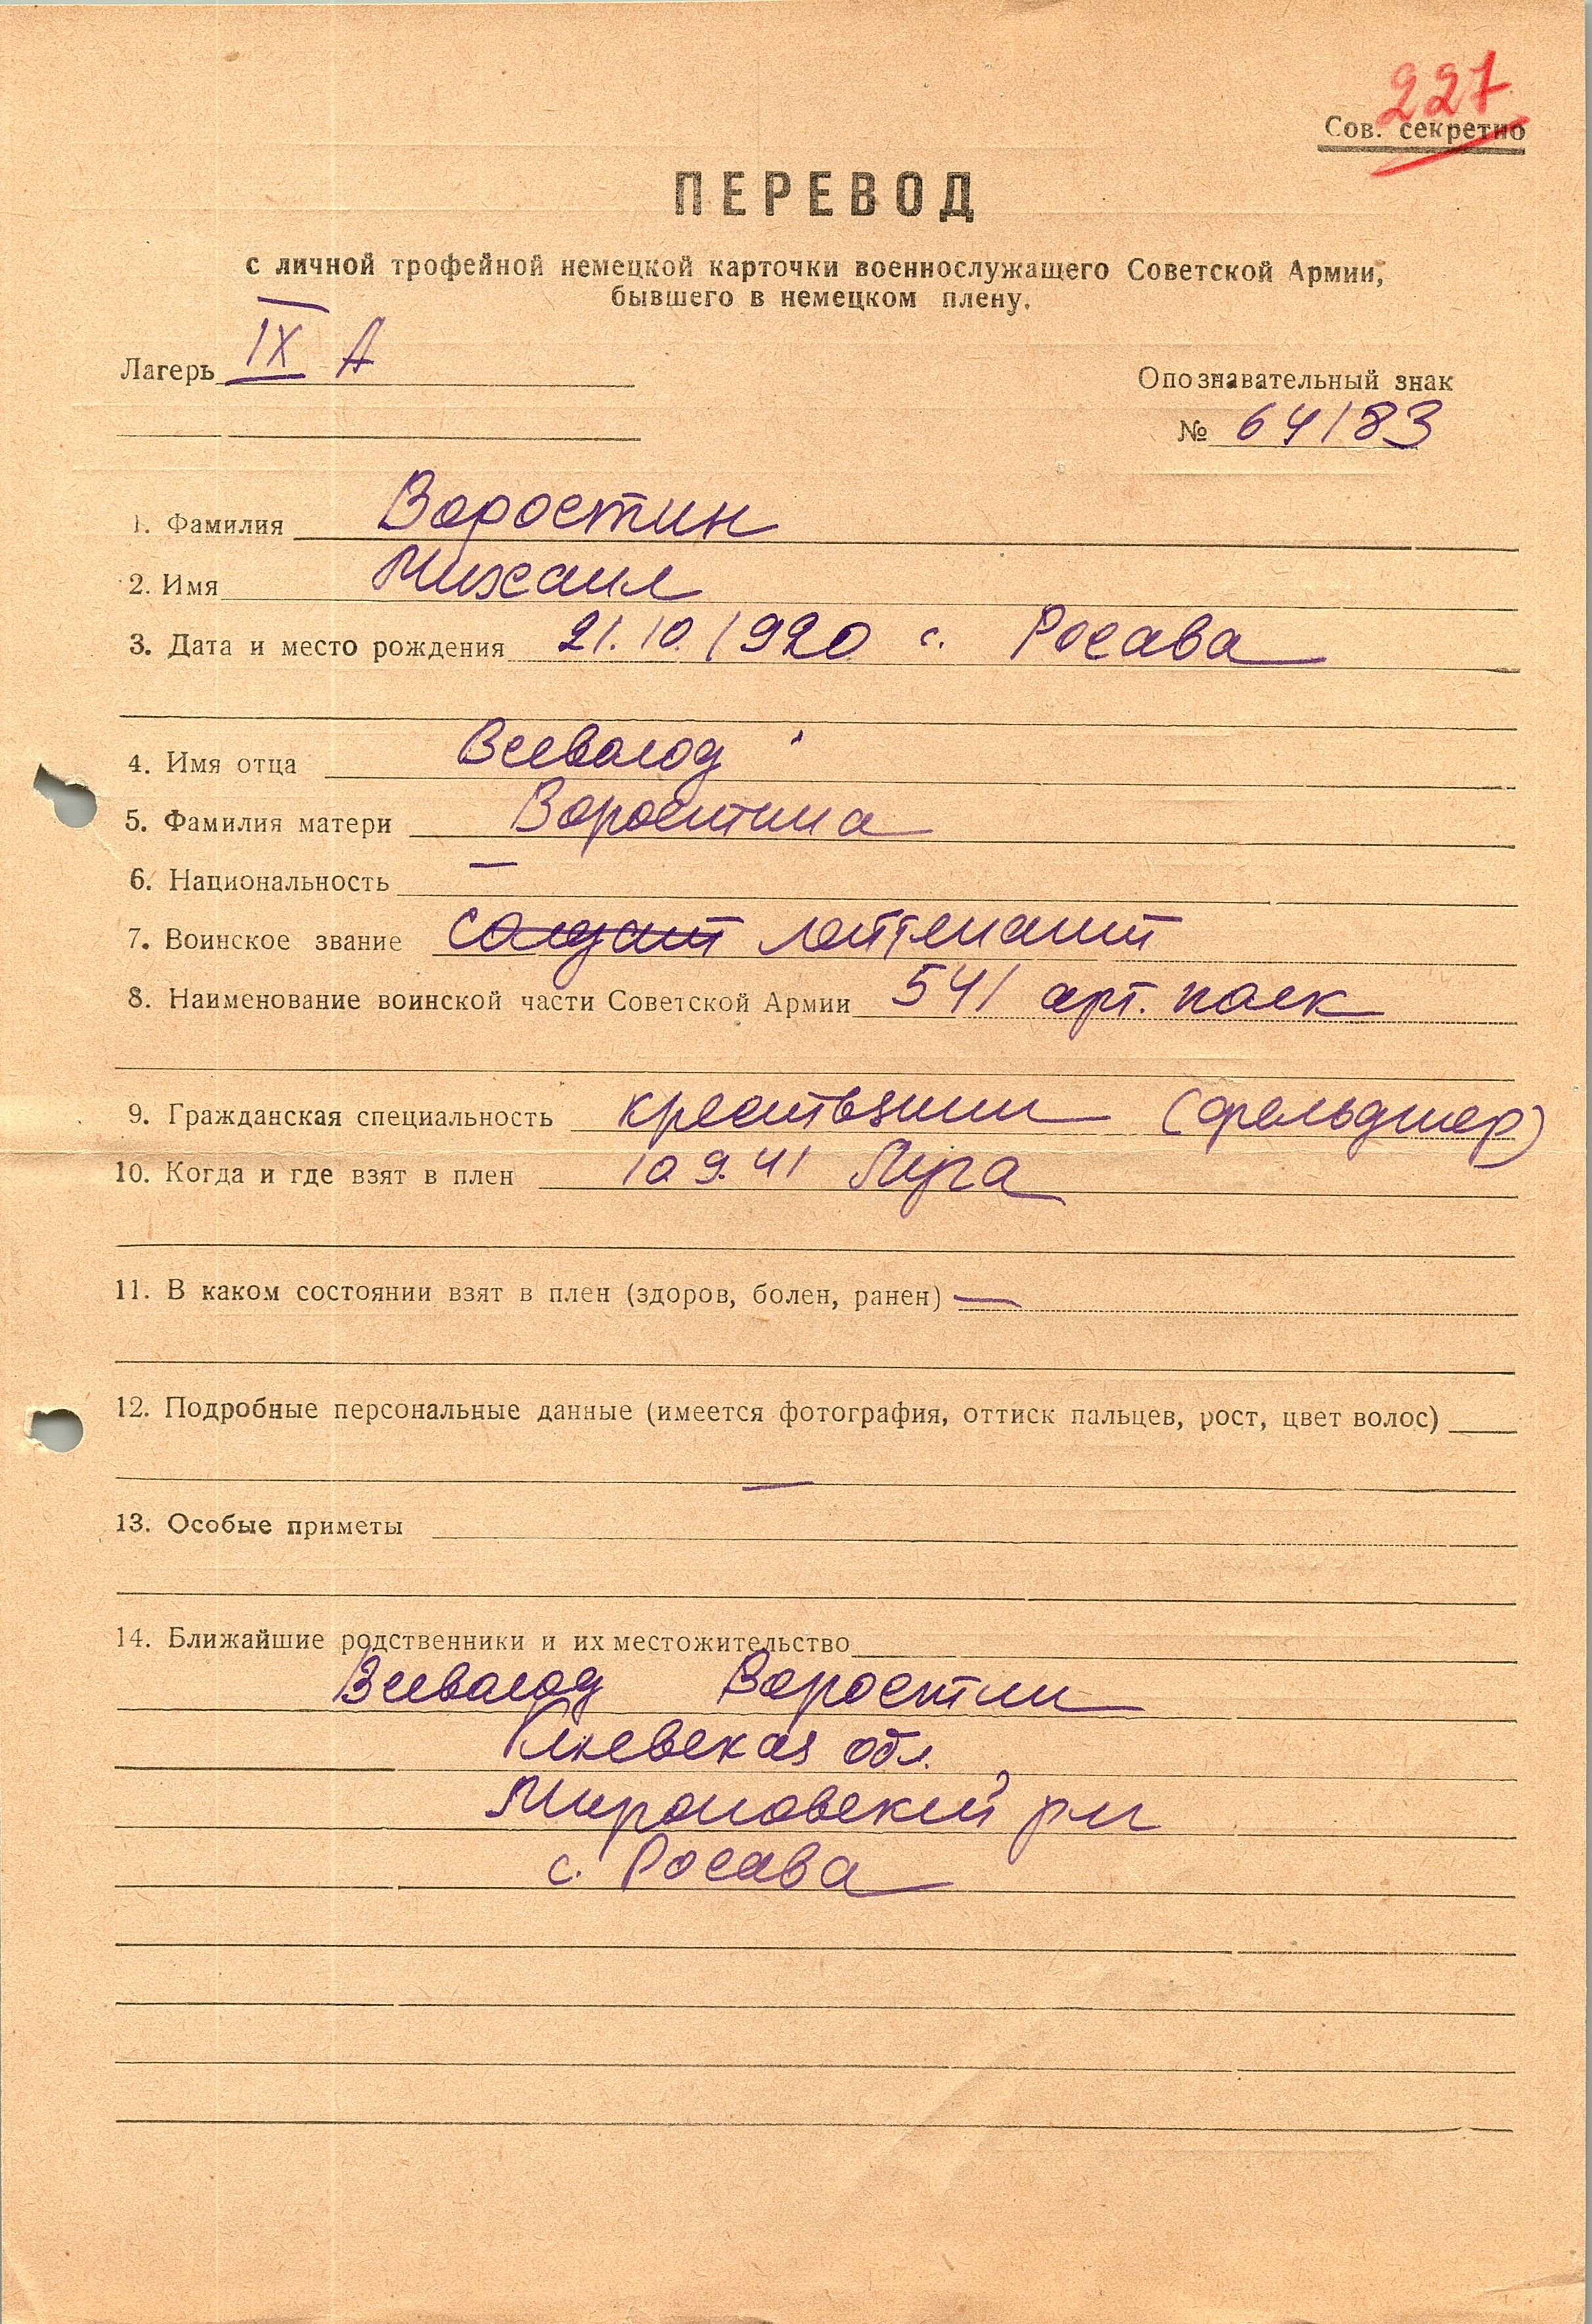 227
Сов. секретно
ПЕРЕВОД
с личной трофейной немецкой карточки военнослужащего Советской Армии,
бывшего в немецком плену.
Лагерь IX A
Опознавательный знак
№ 64183
1. Фамилия Воростин
2. Имя Михаил
3. Дата и место рождения 21.10.1920 с. Росава
4. Имя отца Всеволод
5. Фамилия матери Воростина
6. Национальность —
7. Воинское звание солдат лейтенант
8. Наименование воинской части Советской Армии 541 арт. полк
9. Гражданская специальность крестьянин (фельдшер)
10. Когда и где взят в плен 10.9.41
11. В каком состоянии взят в плен (здоров, болен, ранен) —
12. Подробные персональные данные (имеется фотография, оттиск пальцев, рост, цвет волос)
—
13. Особые приметы
14. Ближайшие родственники и их местожительство
Всеволод Воростин
Киевская обл.
Мироновский р-н
с. Росава